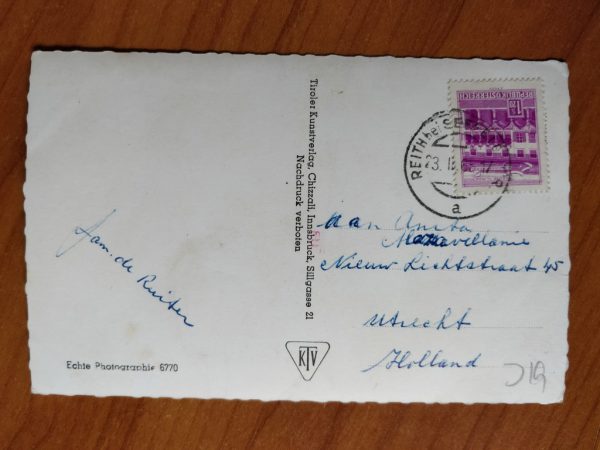 REPUBLIK ÖSTERREICH
1.20
REITH bei SEEFELD
23. II
a
Tiroler Kunstverlag, Chizzali, Innsbruck, Sillgasse 21
Nachdruck verboten
Fam. de Ruiter
Echte Photographie 6770
KTV
aan Anita
Nieuw Lichtstraat 45
Utrecht
Holland